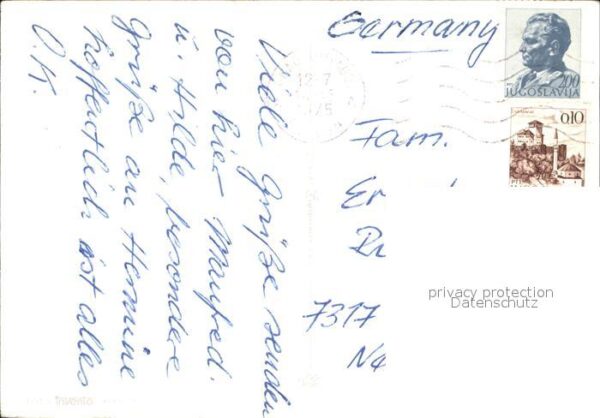 Viele Grüße senden
von hier Manfred.
u. Hilde, besondere
Grüße an Hermine
hoffentlich ist alles
O.K.
Germany
Fam.
Er
7317
JUGOSLAVIJA
2,00
0,10
privacy protection
Datenschutz